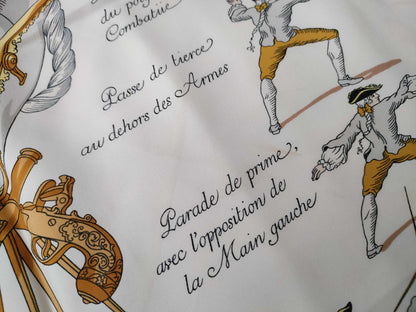 du
Combattie
Passe de tierce
au dehors des Armes
Parade de prime,
avec l'opposition de
la Main gauche